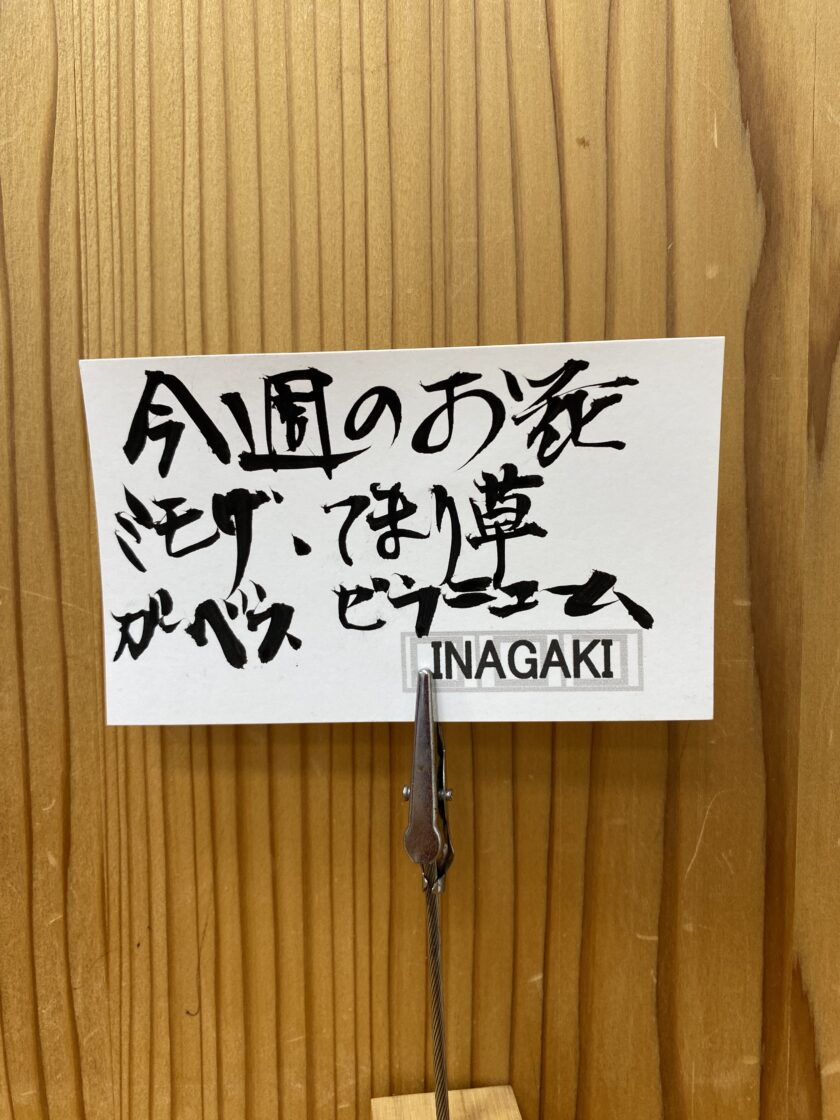 今週のお花
ミモザ、てまり草
ガーベラ ビラニューム
INAGAKI